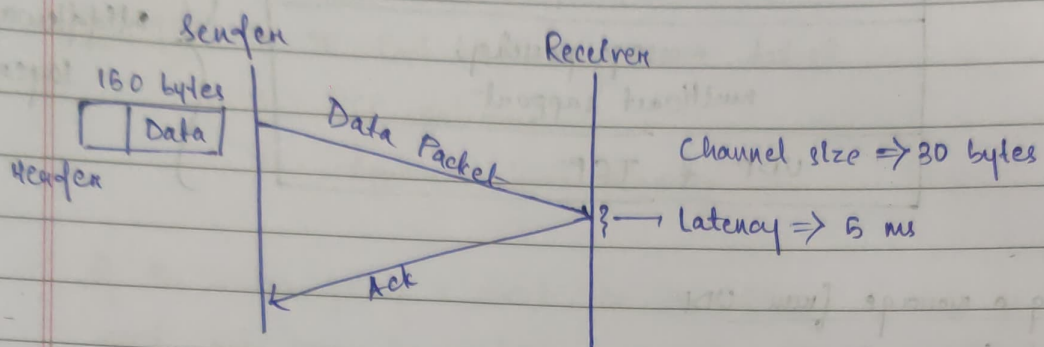 Sender
Receiver
150 bytes
Data
Header
Data Packet
Channel size => 30 bytes
Latency => 5 ms
Ack